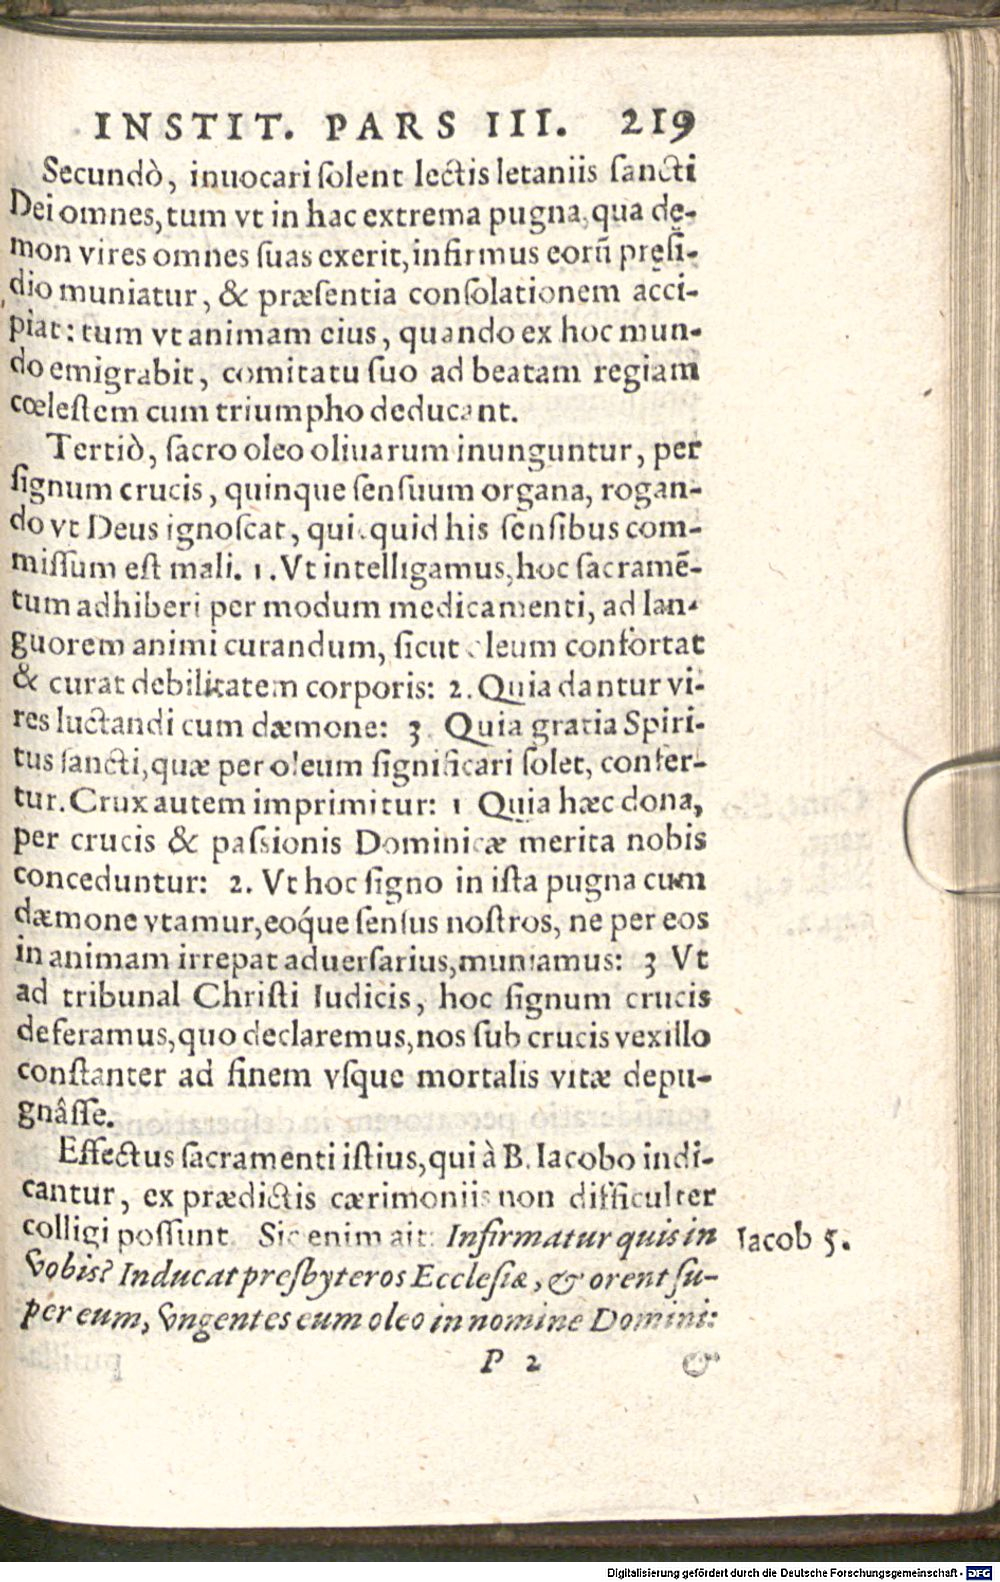 INSTIT. PARS III. 219
Secundò, inuocari ſolent lectis letaniis ſancti
Dei omnes, tum vt in hac extrema pugna, qua dę-
mon vires omnes ſuas exerit, infirmus eorũ pręſi-
dio muniatur, & præſentia conſolationem acci-
piat: tum vt animam eius, quando ex hoc mun-
do emigrabit, comitatu ſuo ad beatam regiam
cœleſtem cum triumpho deducant.
Tertiò, ſacro oleo oliuarum inunguntur, per
ſignum crucis, quinque ſenſuum organa, rogan-
do vt Deus ignoſcat, quicquid his ſenſibus com-
miſſum eſt mali. 1. Vt intelligamus, hoc ſacramẽ-
tum adhiberi per modum medicamenti, ad lan-
guorem animi curandum, ſicut oleum confortat
& curat debilitatem corporis: 2. Quia dantur vi-
res luctandi cum dæmone: 3. Quia gratia Spiri-
tus ſancti, quæ per oleum ſignificari ſolet, confer-
tur. Crux autem imprimitur: 1 Quia hæc dona,
per crucis & paſsionis Dominicæ merita nobis
conceduntur: 2. Vt hoc ſigno in iſta pugna cum
dæmone vtamur, eoq́ue ſenſus noſtros, ne per eos
in animam irrepat aduerſarius, muniamus: 3 Vt
ad tribunal Chriſti Iudicis, hoc ſignum crucis
deferamus, quo declaremus, nos ſub crucis vexillo
conſtanter ad finem vſque mortalis vitæ depu-
gnâſſe.
Effectus ſacramenti iſtius, qui à B. Iacobo indi-
cantur, ex prædictis cærimoniis non difficulter
colligi poſſunt. Sic enim ait: Infirmatur quis in
vobis? Inducat presbyteros Eccleſiæ, & orent ſu-
per eum, vngentes eum oleo in nomine Domini:
Iacob 5.
P 2
&
Digitalisierung gefördert durch die Deutsche Forschungsgemeinschaft - DFG